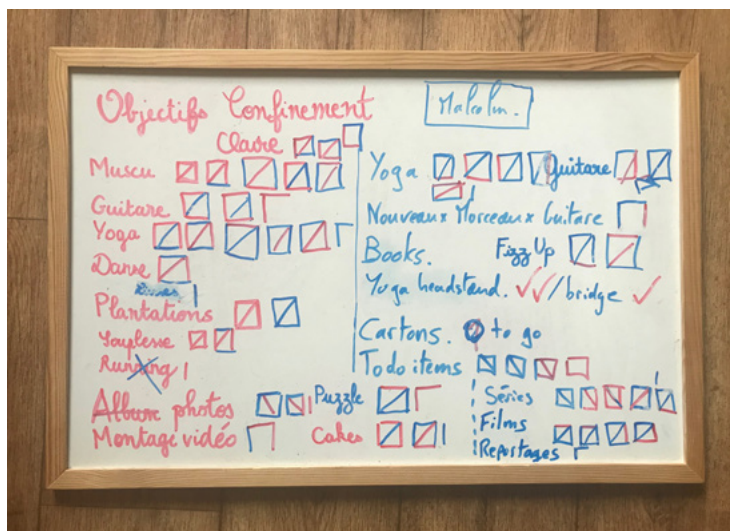 Objectifs Confinement
Malcolm.
Claire
Muscu
Guitare
Yoga
Danse
Plantations
Souplesse
Running
Album photos
Montage vidéo
Puzzle
Cakes
Yoga
Guitare
Nouveaux Morceaux Guitare
Books.
Fizz Up
Yoga headstand. ✓✓/bridge ✓
Cartons. to go
Todo items
Séries
Films
Reportages